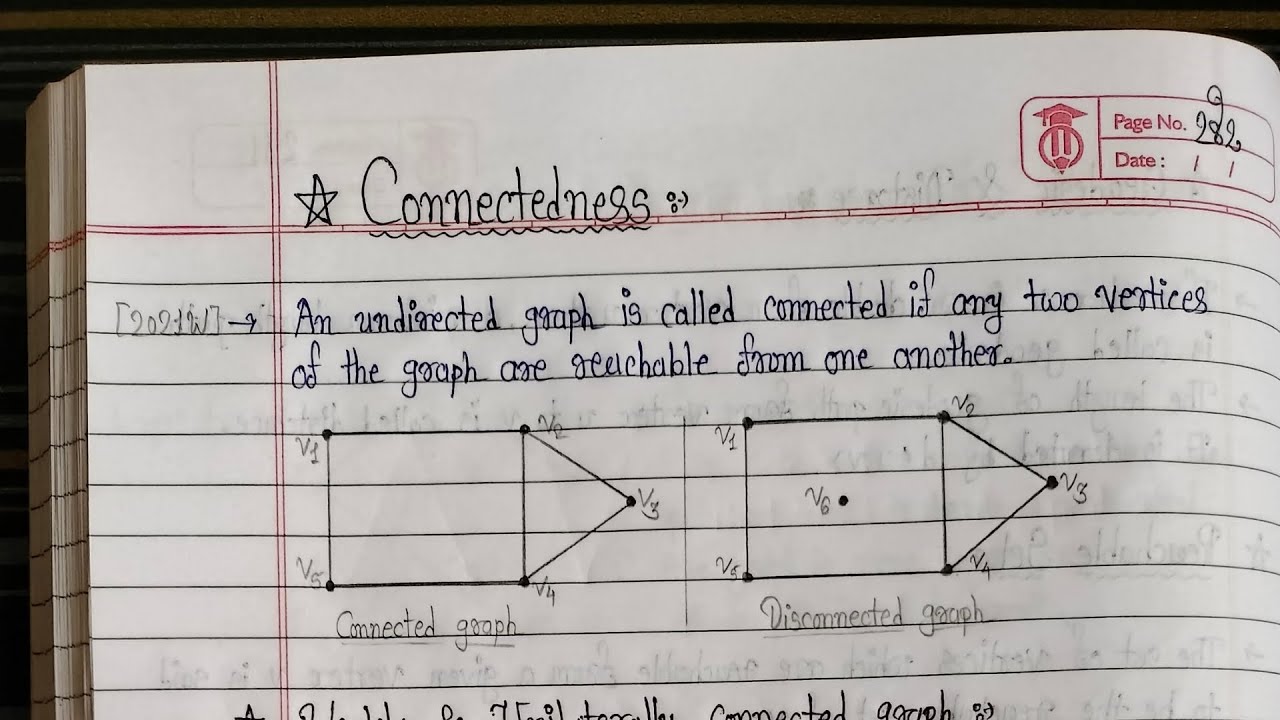 Page No. 282
Date: / /
☆ Connectedness :-)
[2021W] → An undirected graph is called connected if any two vertices
of the graph are reachable from one another.
V1 V2 V3 V4 V5
Connected graph
V1 V2 V3 V4 V5 V6
Disconnected graph
connected graph :-)